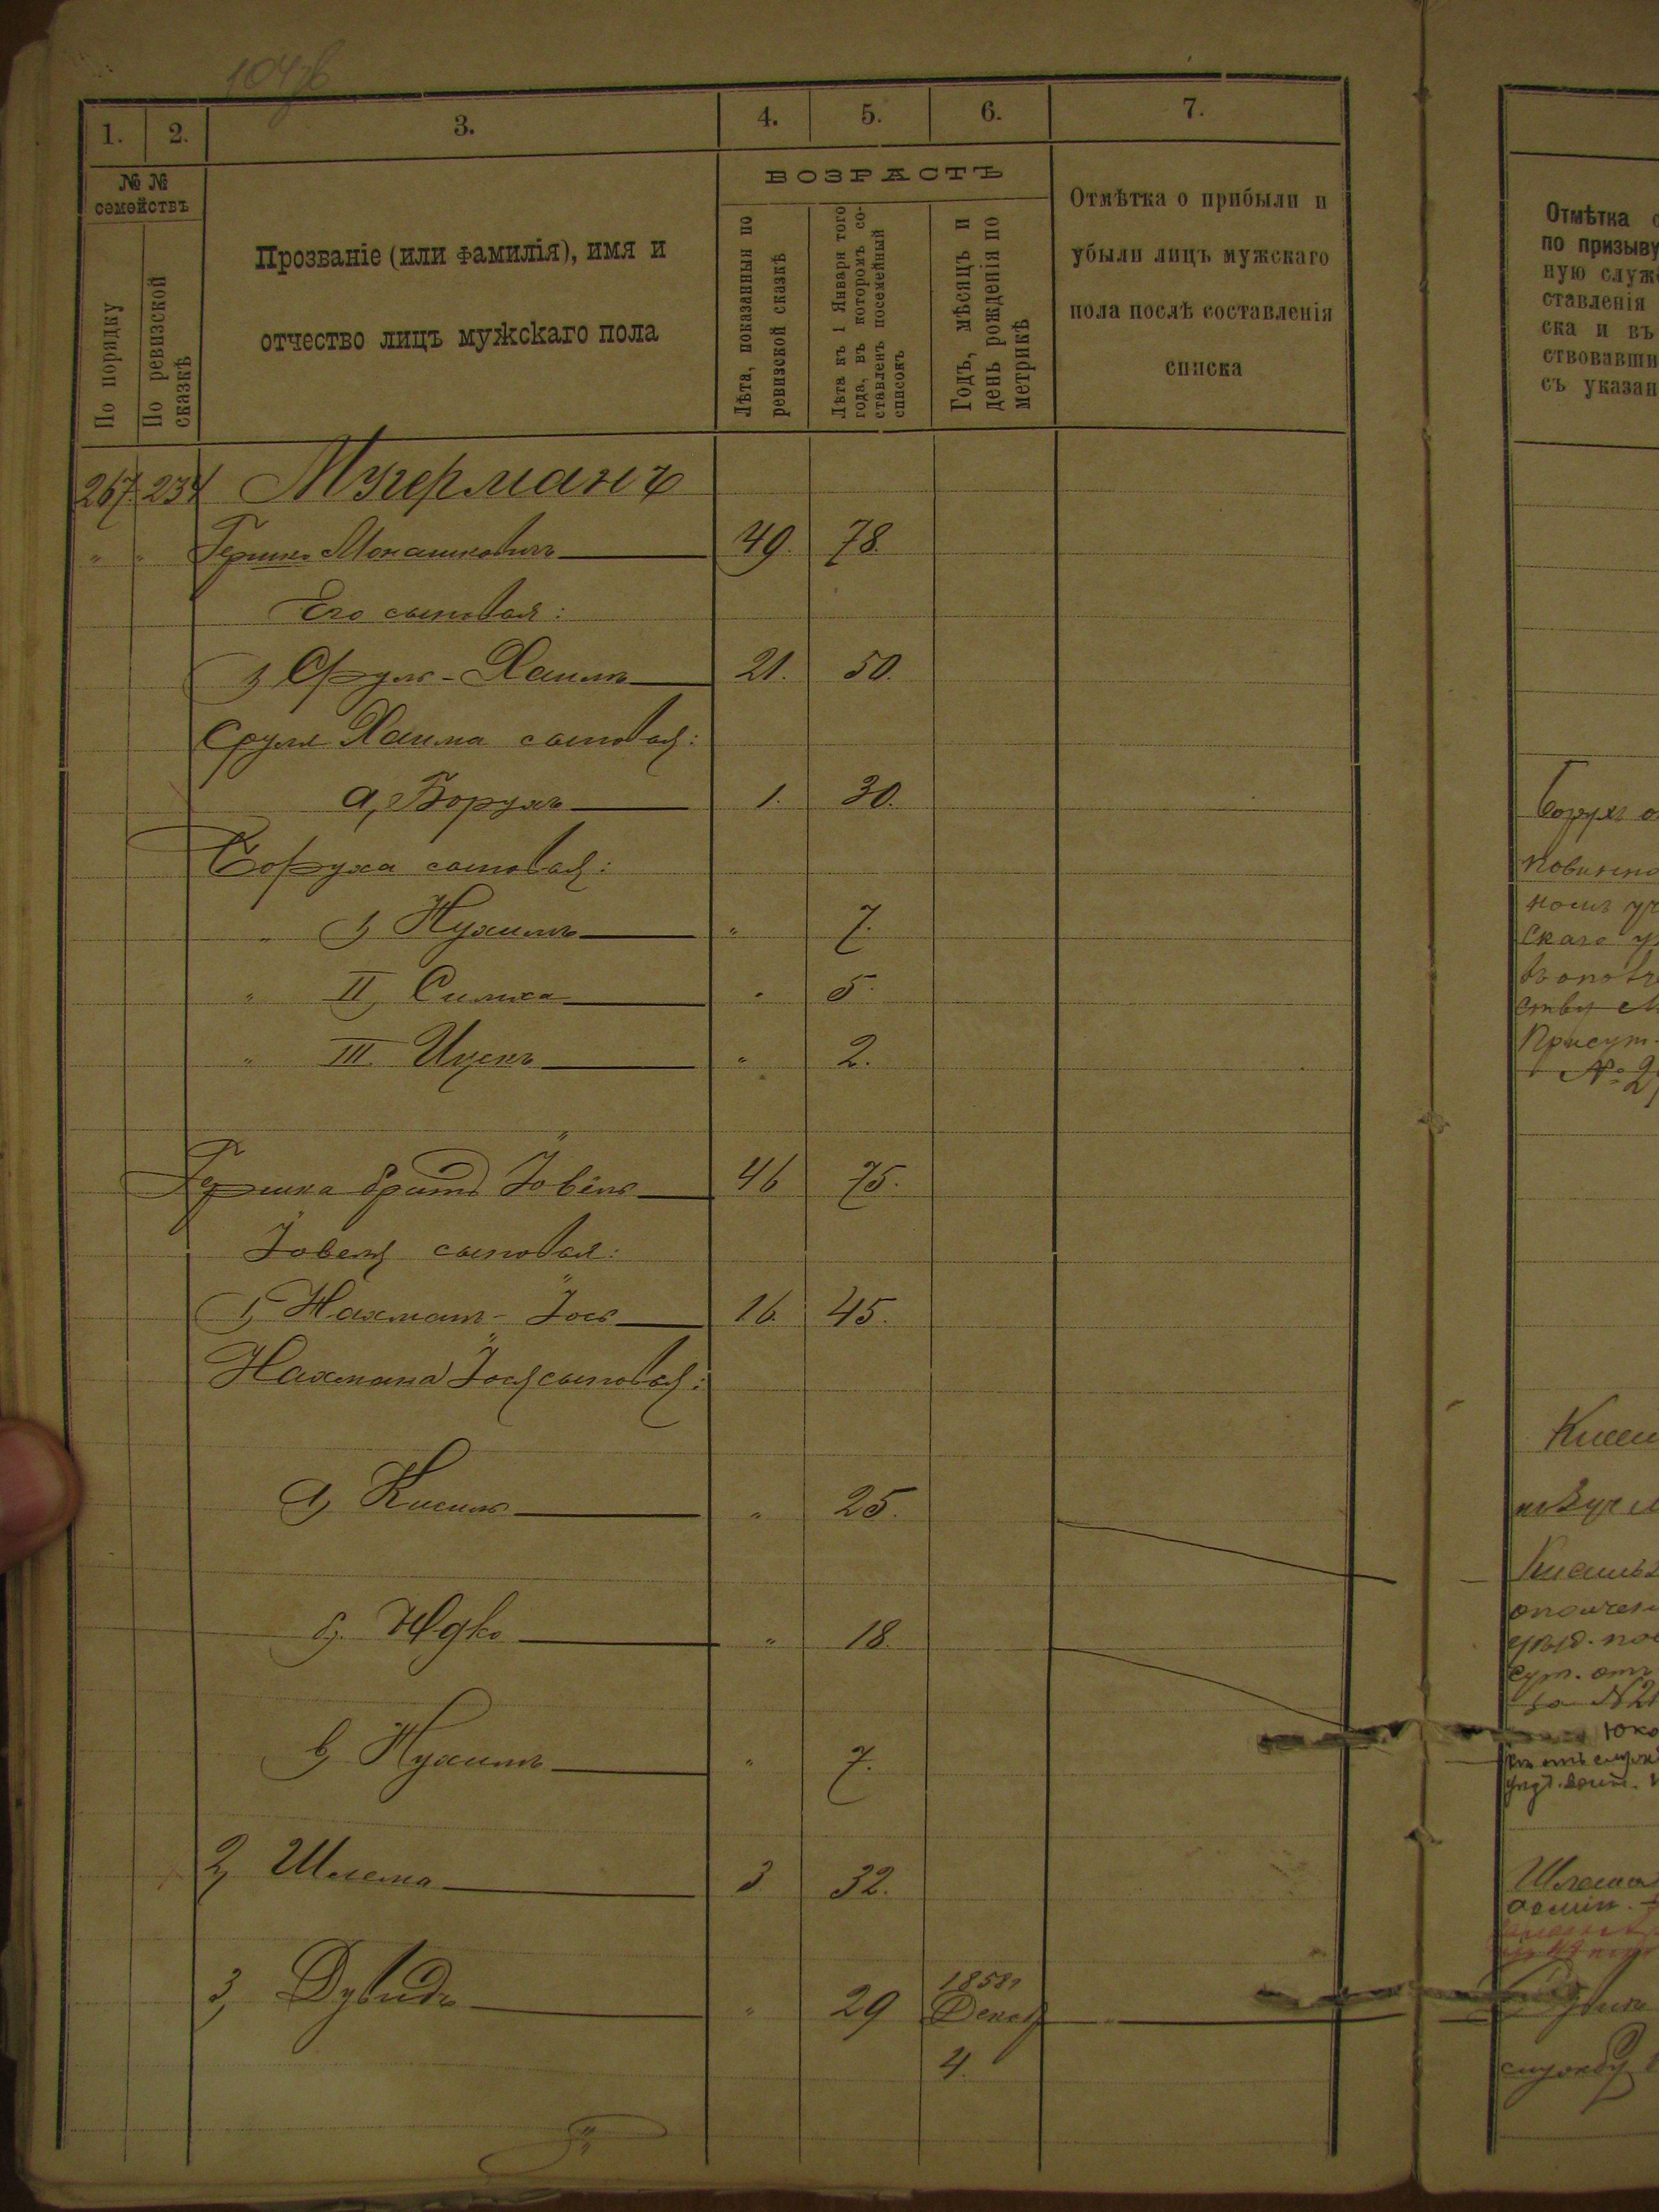 1. 2. 3. 4. 5. 6. 7.
№ №
семействъ
По порядку
По ревизской
сказкѣ
Прозваніе (или фамилія), имя и
отчество лицъ мужскаго пола
ВОЗРАСТЪ
Лѣта, показанныя по
ревизской сказкѣ
Лѣта къ 1 Января того
года, въ которомъ со-
ставленъ посемейный
списокъ
Годъ, мѣсяцъ и
день рожденія по
метрикѣ
Отмѣтка о прибыли и
убыли лицъ мужскаго
пола послѣ составленія
списка
267 234 Мучерманъ
" " Гершко Монашковичъ 49. 78.
Его сыновья:
1, Сруль-Хаимъ 21. 50.
Сруля Хаима сыновья:
а, Борухъ 1. 30.
Боруха сыновья:
" I, Нухимъ " 7.
" II, Симха " 5.
" III. Ицекъ " 2.
Гершка братъ Іовель 46 75.
Іовеля сыновья:
1, Нахманъ-Іось 16. 45.
Нахмана Іося сыновья:
а, Кисиль " 25.
б, Юдко " 18.
в, Нухимъ " 7.
2, Шлема 3 32.
3, Дувидъ " 29 1858
Декаб
4.
Отмѣтка
по призыву
ную служ
ставленія
ска и въ
ствовавши
съ указан
Борухъ
повинно
Присут.
№ 2
Шлема
службу